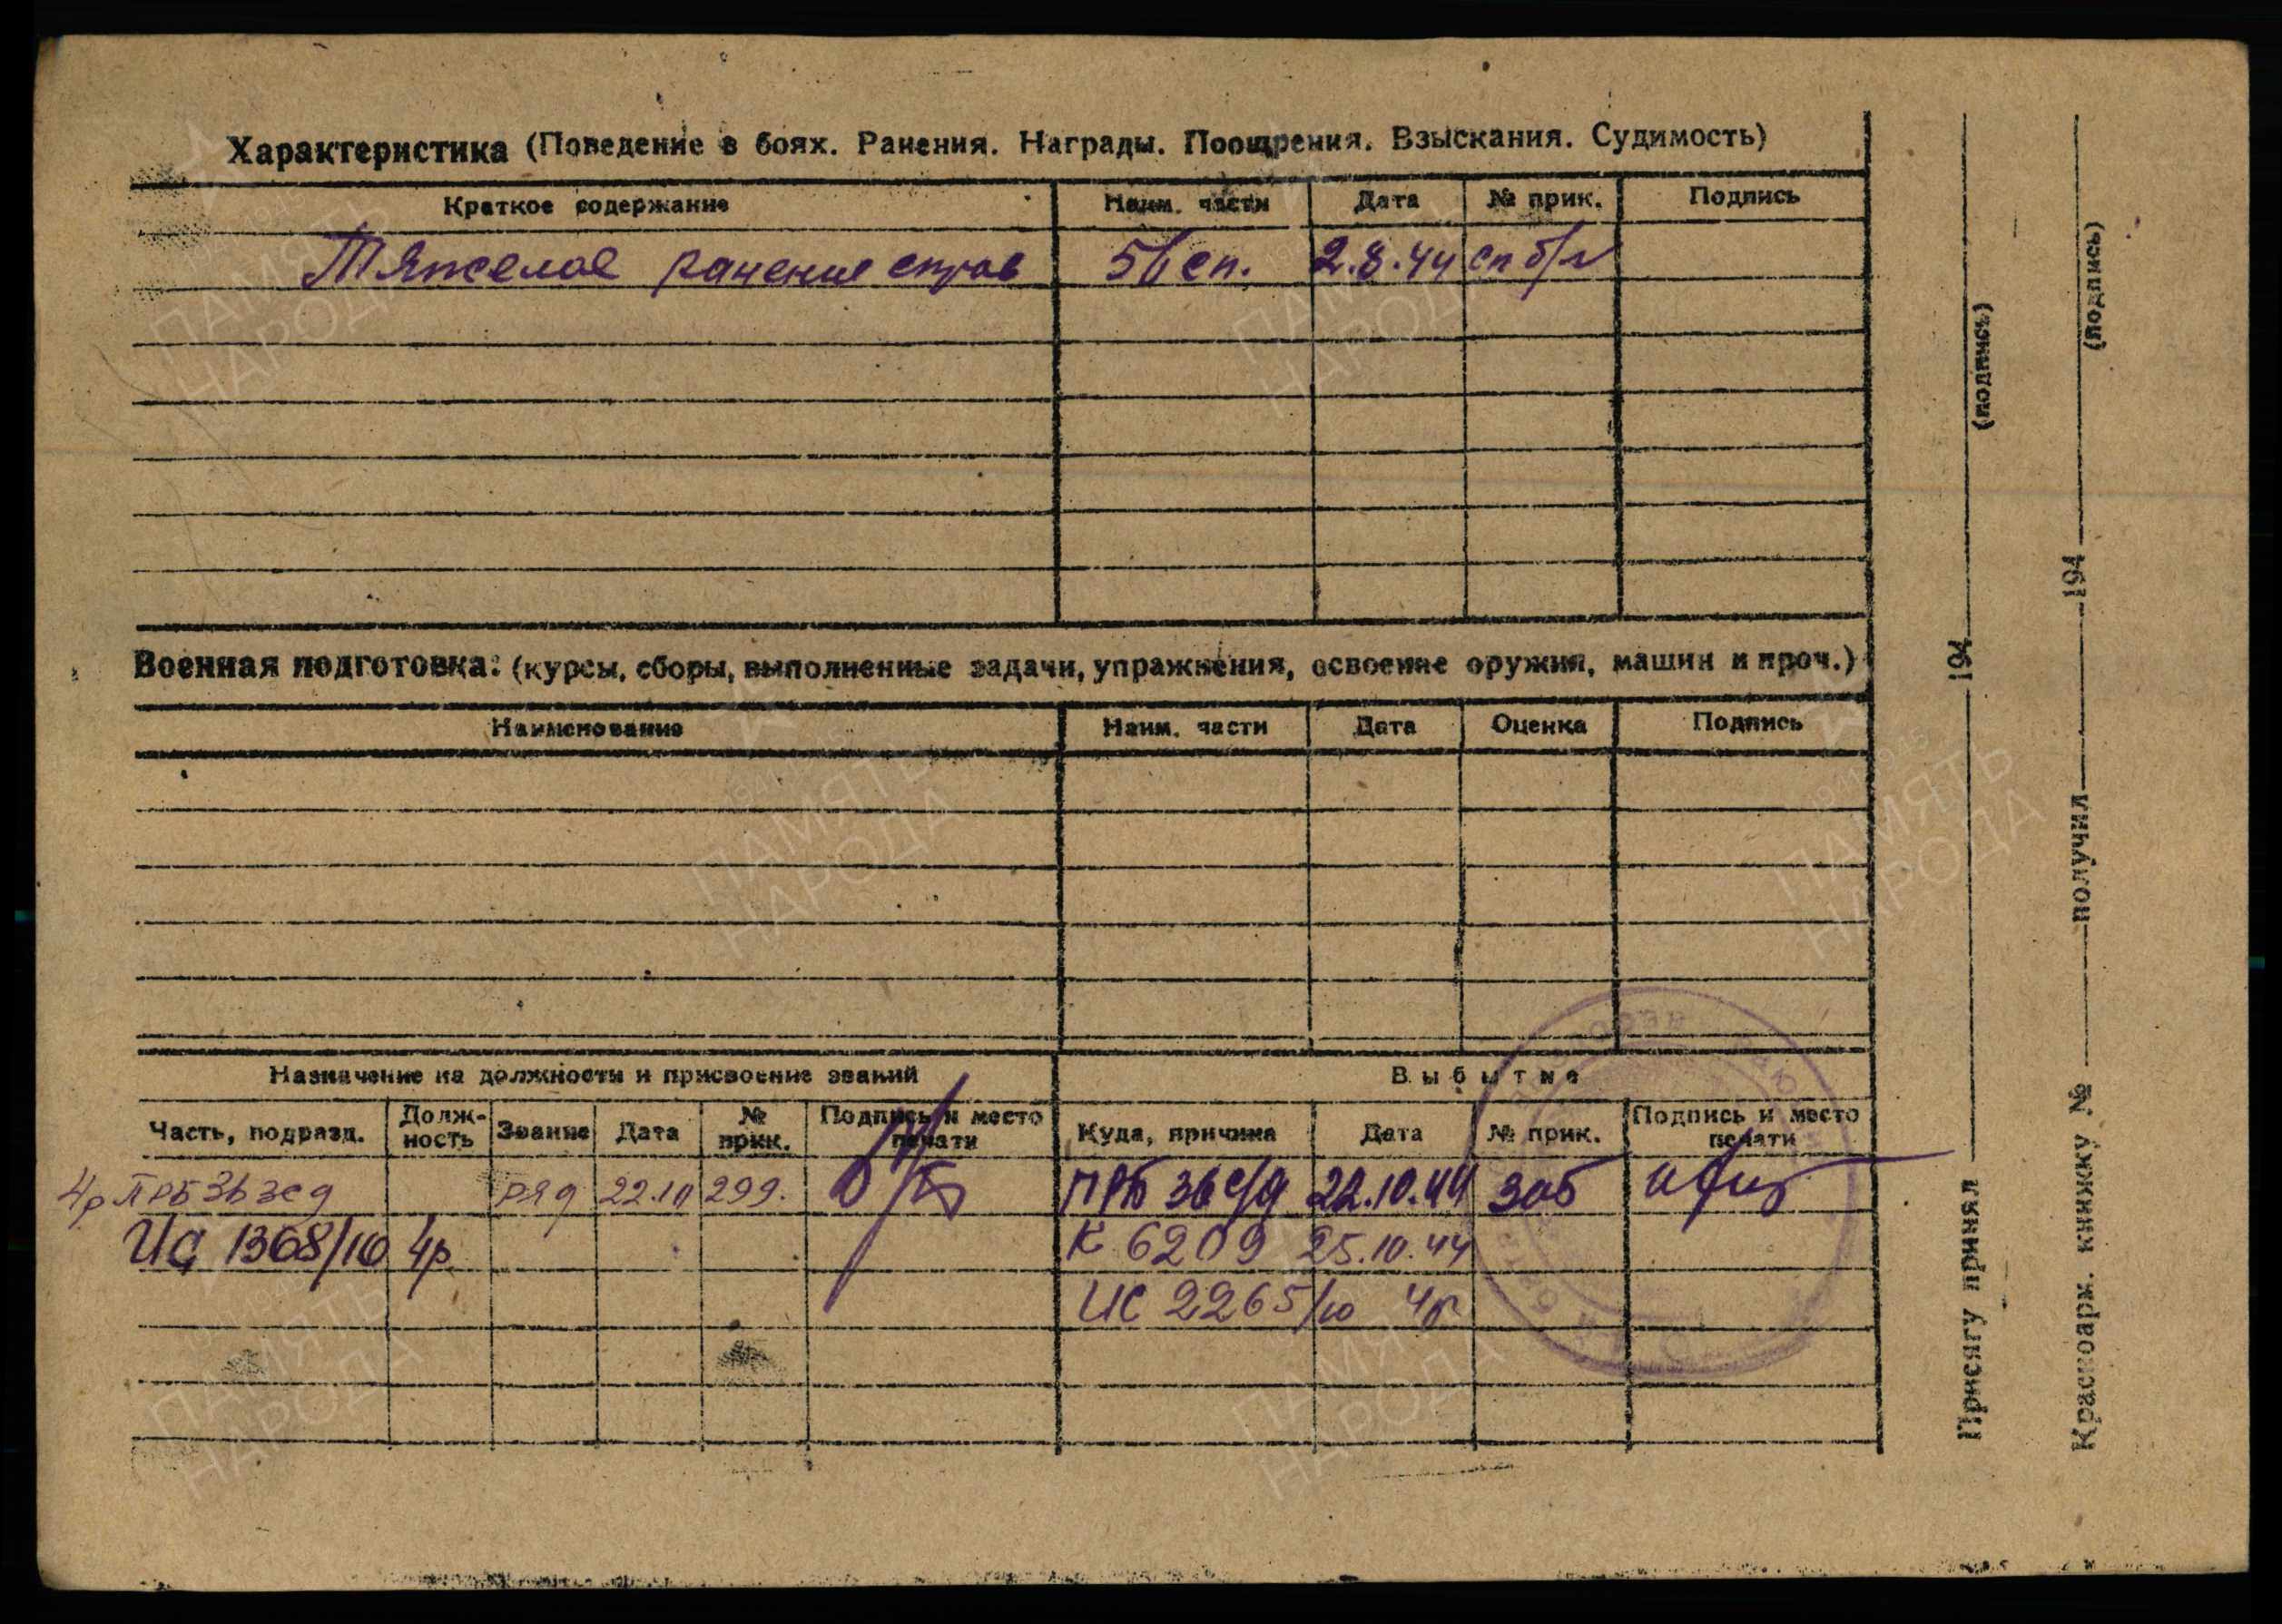 Характеристика (Поведение в боях. Ранения. Награды. Поощрения. Взыскания. Судимость)
Краткое содержание Наим. части Дата № прик. Подпись
Тяжелое ранение сп. 2.8.44
Военная подготовка: (курсы, сборы, выполненные задачи, упражнения, освоение оружия, машин и проч.)
Наименование Наим. части Дата Оценка Подпись
Назначение на должности и присвоение званий Выбытие
Часть, подразд. Долж-ность Звание Дата № прик. Подпись и место печати Куда, причина Дата № прик. Подпись и место печати
4р ПРБ 36 зсд ряд 22.10 299. ПРБ 36 с/д 22.10.44 305
ИС 1368/10 4р. К 6209 25.10.44
ИС 2265/10 4р
Присягу принял 194
(подпись)
Красноарм. книжку № получил 194
(подпись)
ПАМЯТЬ НАРОДА
ПАМЯТЬ НАРОДА
ПАМЯТЬ НАРОДА
ПАМЯТЬ НАРОДА
ПАМЯТЬ НАРОДА
ПАМЯТЬ НАРОДА